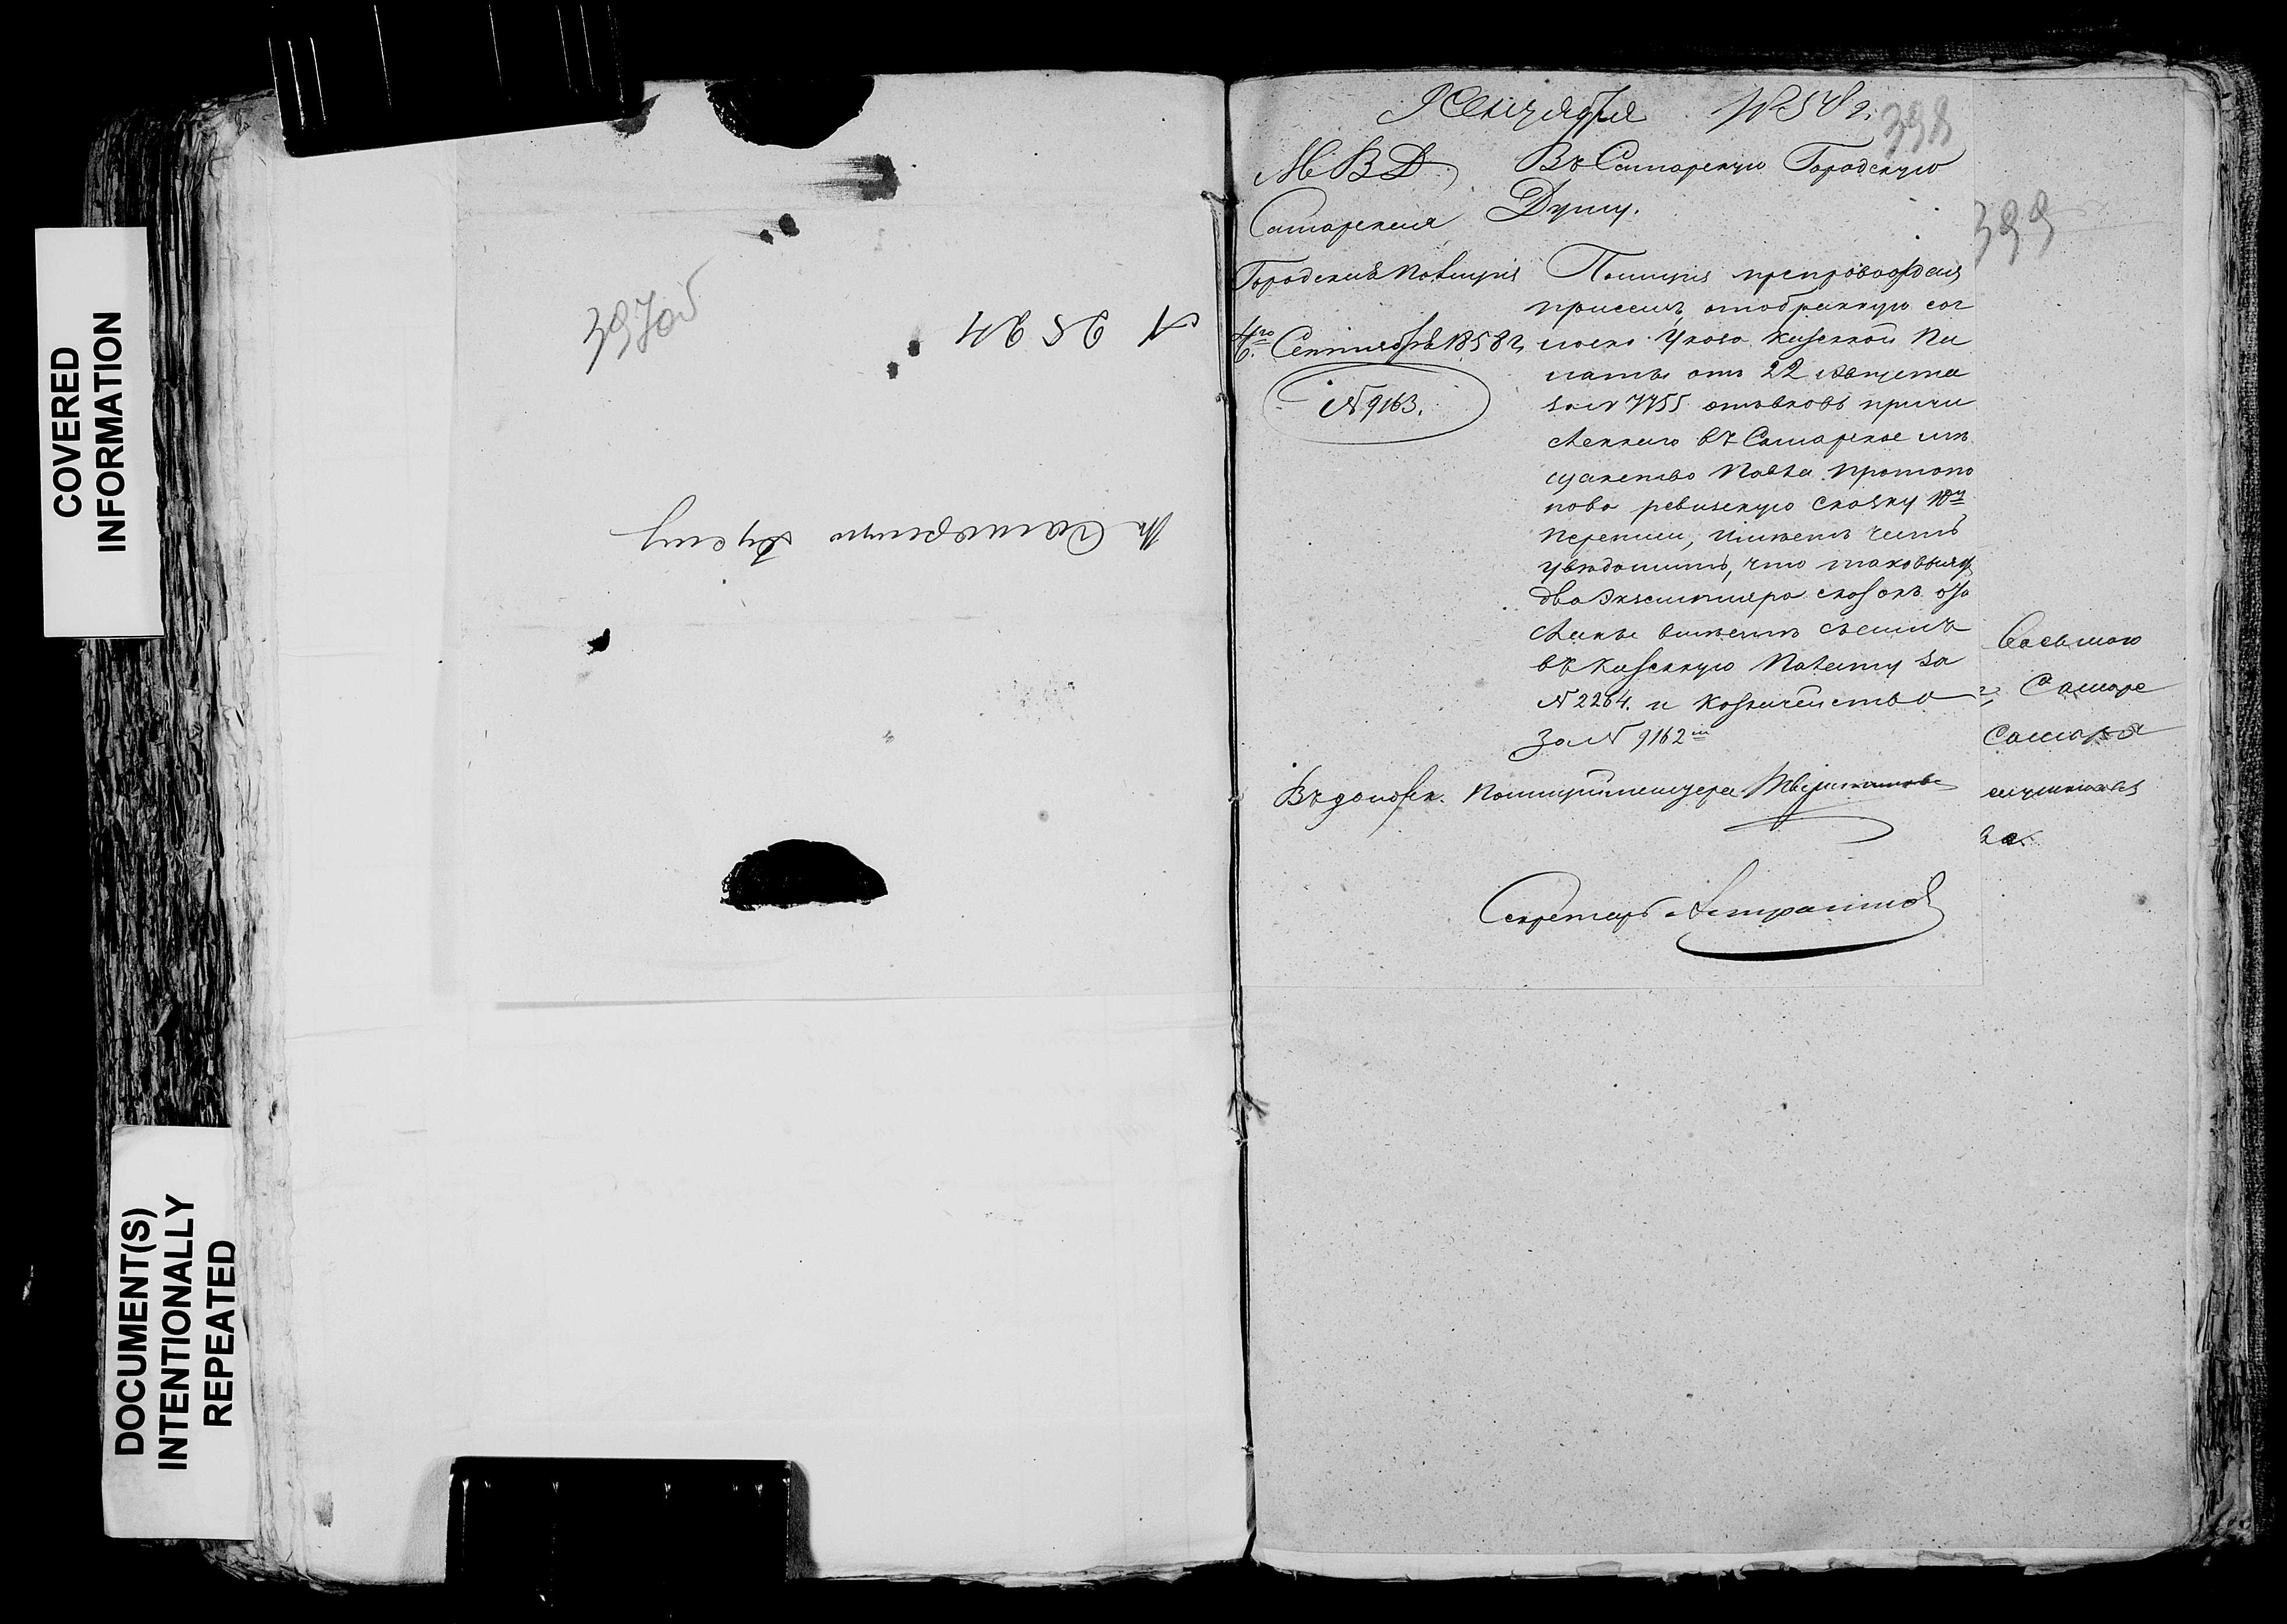 COVERED
INFORMATION
DOCUMENT(S)
INTENTIONALLY
REPEATED
397об
№ 2524
Въ Самарскую Думу
9 Сентября №2578 г.
398
399
МВД.
Самарская
Городская Полиція
Сентября 1858 г.
№ 9163.
Въ Самарскую Городскую
Думу.
Полиція препровождая
присемъ, отобранную сог
ласно Указа Казенной Па
латы отъ 22 Августа
за № 7755 отзывовъ причи
сленнаго въ Самарское мѣ
щанство Павла Протопо
пова ревизскую сказку 10й
переписи, имѣетъ честь
увѣдомить, что таковыя
два Экземпляра сказокъ
вмѣстѣ съ симъ
въ Казенную Палату за
№ 2264. и Казначейство
За № 9162
Полиціймейстера
Секретарь
Восьмаго
Самаре
Самара
за